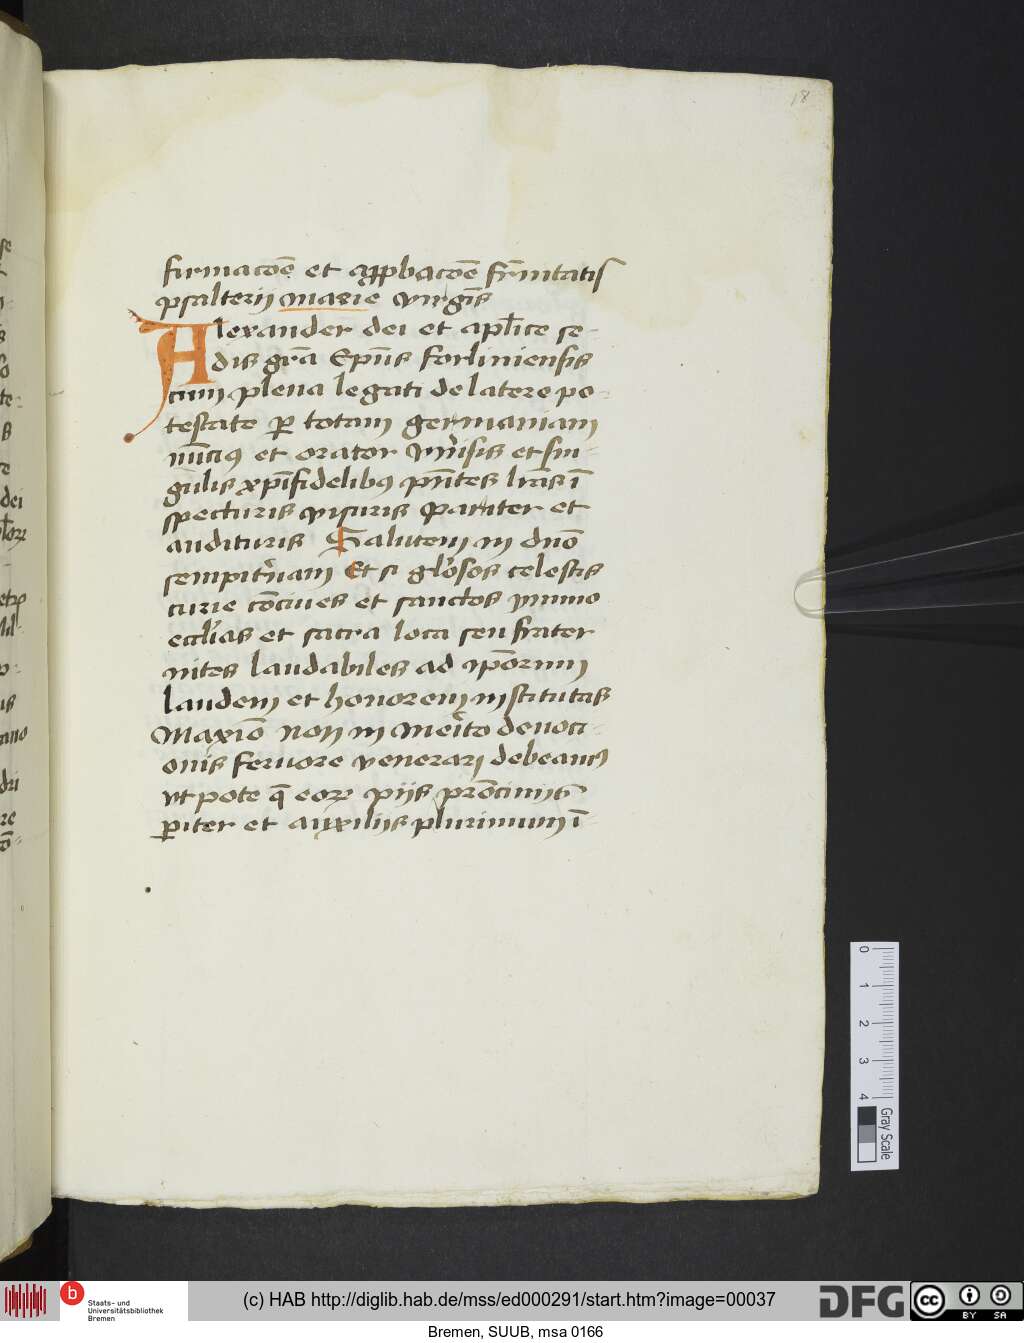 18
firmacoē et appbacoē frnitatis
psalterij marie virgīs
Alexander dei et aplice se-
dis grā Epūs forliuiensis
cum plena legati de latere po-
testate ꝑ totam germaniam
nūciꝰ et orator vniūsis et sin-
gulis xpīfidelibꝰ pntes lrās ī
specturis visuris pariter et
audituris Salutem in dnō
sempitnam Et si glosos celestis
curie cōciues et sanctos ymmo
ecclīas et sacra loca seu frater
nites laudabiles ad ipōrum
laudem et honorem institutas
Maxiō non in meīto deuoci-
onis feruore venerari debeamꝰ
vt pote q̄ eoꝝ pijs
ꝑiter et auxilijs plurimum ī-
0 1 2 3 4
Gray Scale
b
Staats- und
Universitätsbibliothek
Bremen
(c) HAB http://diglib.hab.de/mss/ed000291/start.htm?image=00037
DFG
cc
BY SA
Bremen, SUUB, msa 0166